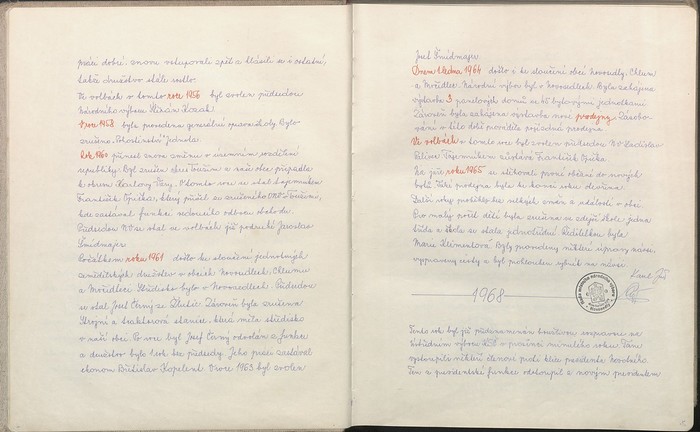 práce dobré, znovu vstupovali zpět a hlásili se i ostatní,
takže družstvo stále rostlo.
Ve volbách v tomto roce 1956 byl zvolen předsedou
Národního výboru Kozák.
V roce 1958 byla provedena generální oprava školy. Bylo
zrušeno Pohostinství Jednota.
Rok 1960 přinesl znovu změnu v územním rozdělení
republiky. Byl zrušen okres Toužim a naše obec připadla
k okresu Karlovy Vary. V tomto roce se stal tajemníkem
František Opička, který přišel ze zrušeného ONV v Toužimi,
kde zastával funkci vedoucího odboru obchodu.
Předsedou NV se stal ve volbách již podruhé Jaroslav
Šmídmajer
Počátkem roku 1961 došlo ke sloučení jednotných
zemědělských družstev v obcích Novosedlech, Chlumu
a Mořičkov. Středisko bylo v Novosedlech. Předsedou
se stal Josef Černý ze Žlutic. Zároveň byla zrušena
Strojní a traktorová stanice, která měla středisko
v naší obci. Po roce byl Josef Černý odvolán z funkce
a družstvo bylo 1 rok bez předsedy. Jeho práci zastával
ekonom Břetislav Kopelent. V roce 1963 byl zvolen
Josef Šmídmajer
Dnem 1. ledna 1964 došlo i ke sloučení obcí Novosedly, Chlum
a Národní výbor byl v Novosedlech. Byla zahájena
výstavba 3 panelových domů se 16 bytovými jednotkami.
Zároveň byla zahájena výstavba nové prodejny. Zásobo-
vání v této době prováděla pojízdná prodejna
Ve volbách v tomto roce byl zvolen předsedou NV Ladislav
Tajemníkem zůstává František Opička.
Na jaře roku 1965 se stěhovali první občané do nových
bytů. Také prodejna byla ke konci roku otevřena.
Další roky proběhly bez velkých změn a událostí v obci.
Pro malý počet dětí byla zrušena ve zdejší škole jedna
třída a škola se stala jednotřídní. Ředitelkou byla
Marie Klementová. Byly provedeny některé úpravy návsi,
vyspraveny cesty a byl prohlouben rybník na návsi
Karel
1968
Tento rok byl již předznamenán bouřlivou rozpravou na
výboru KSČ v prosinci minulého roku. Tam
vystoupili někteří členové proti kladu prezidenta Novotného.
Ten z prezidentské funkce odstoupil a novým prezidentem